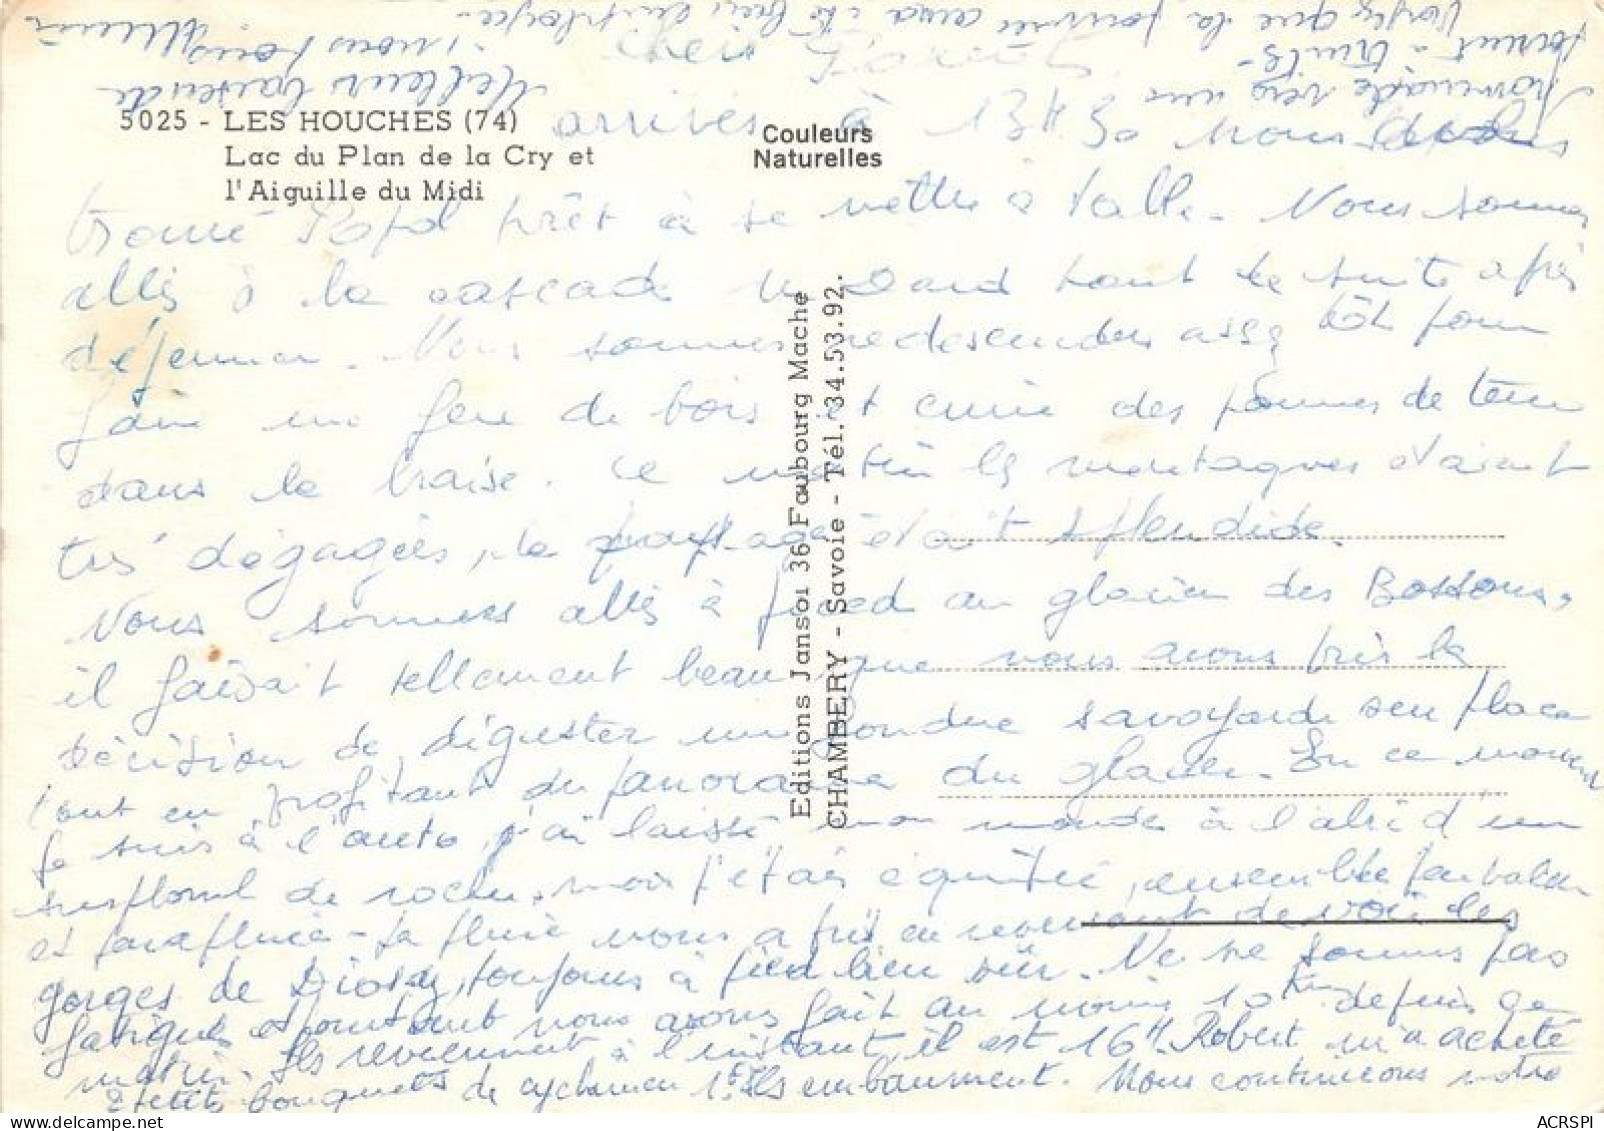 5025 - LES HOUCHES (74)
Lac du Plan de la Cry et
l'Aiguille du Midi
Couleurs
Naturelles
Editions Jansol 36 Faubourg Mache
CHAMBERY - Savoie - Tél. 34.53.92.
arrivés à 13H30 Nous
trouvé prêt à se mettre à table. Nous sommes
allés à la cascade du Dard tout de suite après
déjeuner. Nous sommes redescendus assez tôt pour
faire un feu de bois et cuire des pommes de terre
dans la braise. Ce matin les montagnes étaient
très dégagées, le paysage était splendide.
Nous sommes allés à pied au glacier des Bossons,
il faisait tellement beau que nous avons pris la
décision de déguster une fondue savoyarde sur place
tout en profitant du panorama du glacier. En ce moment
je suis à l'auto, j'ai laissé mon monde à l'abri d'un
surplomb de rocher, mais j'étais équipée, ensemble
et parapluie - La pluie nous a pris en revenant de voir les
gorges de Diosaz, toujours à pied bien sûr. Ne sommes pas
fatigués et pourtant nous avons fait au moins 10 km depuis ce
matin. Ils reviennent à l'instant, il est 16H. Robert m'a acheté
2 petits bouquets de cyclamen Ils embaument. Nous continuons notre
promenade vers
truite -
que la journée sera bien employée -
Meilleurs baisers de
nous tous